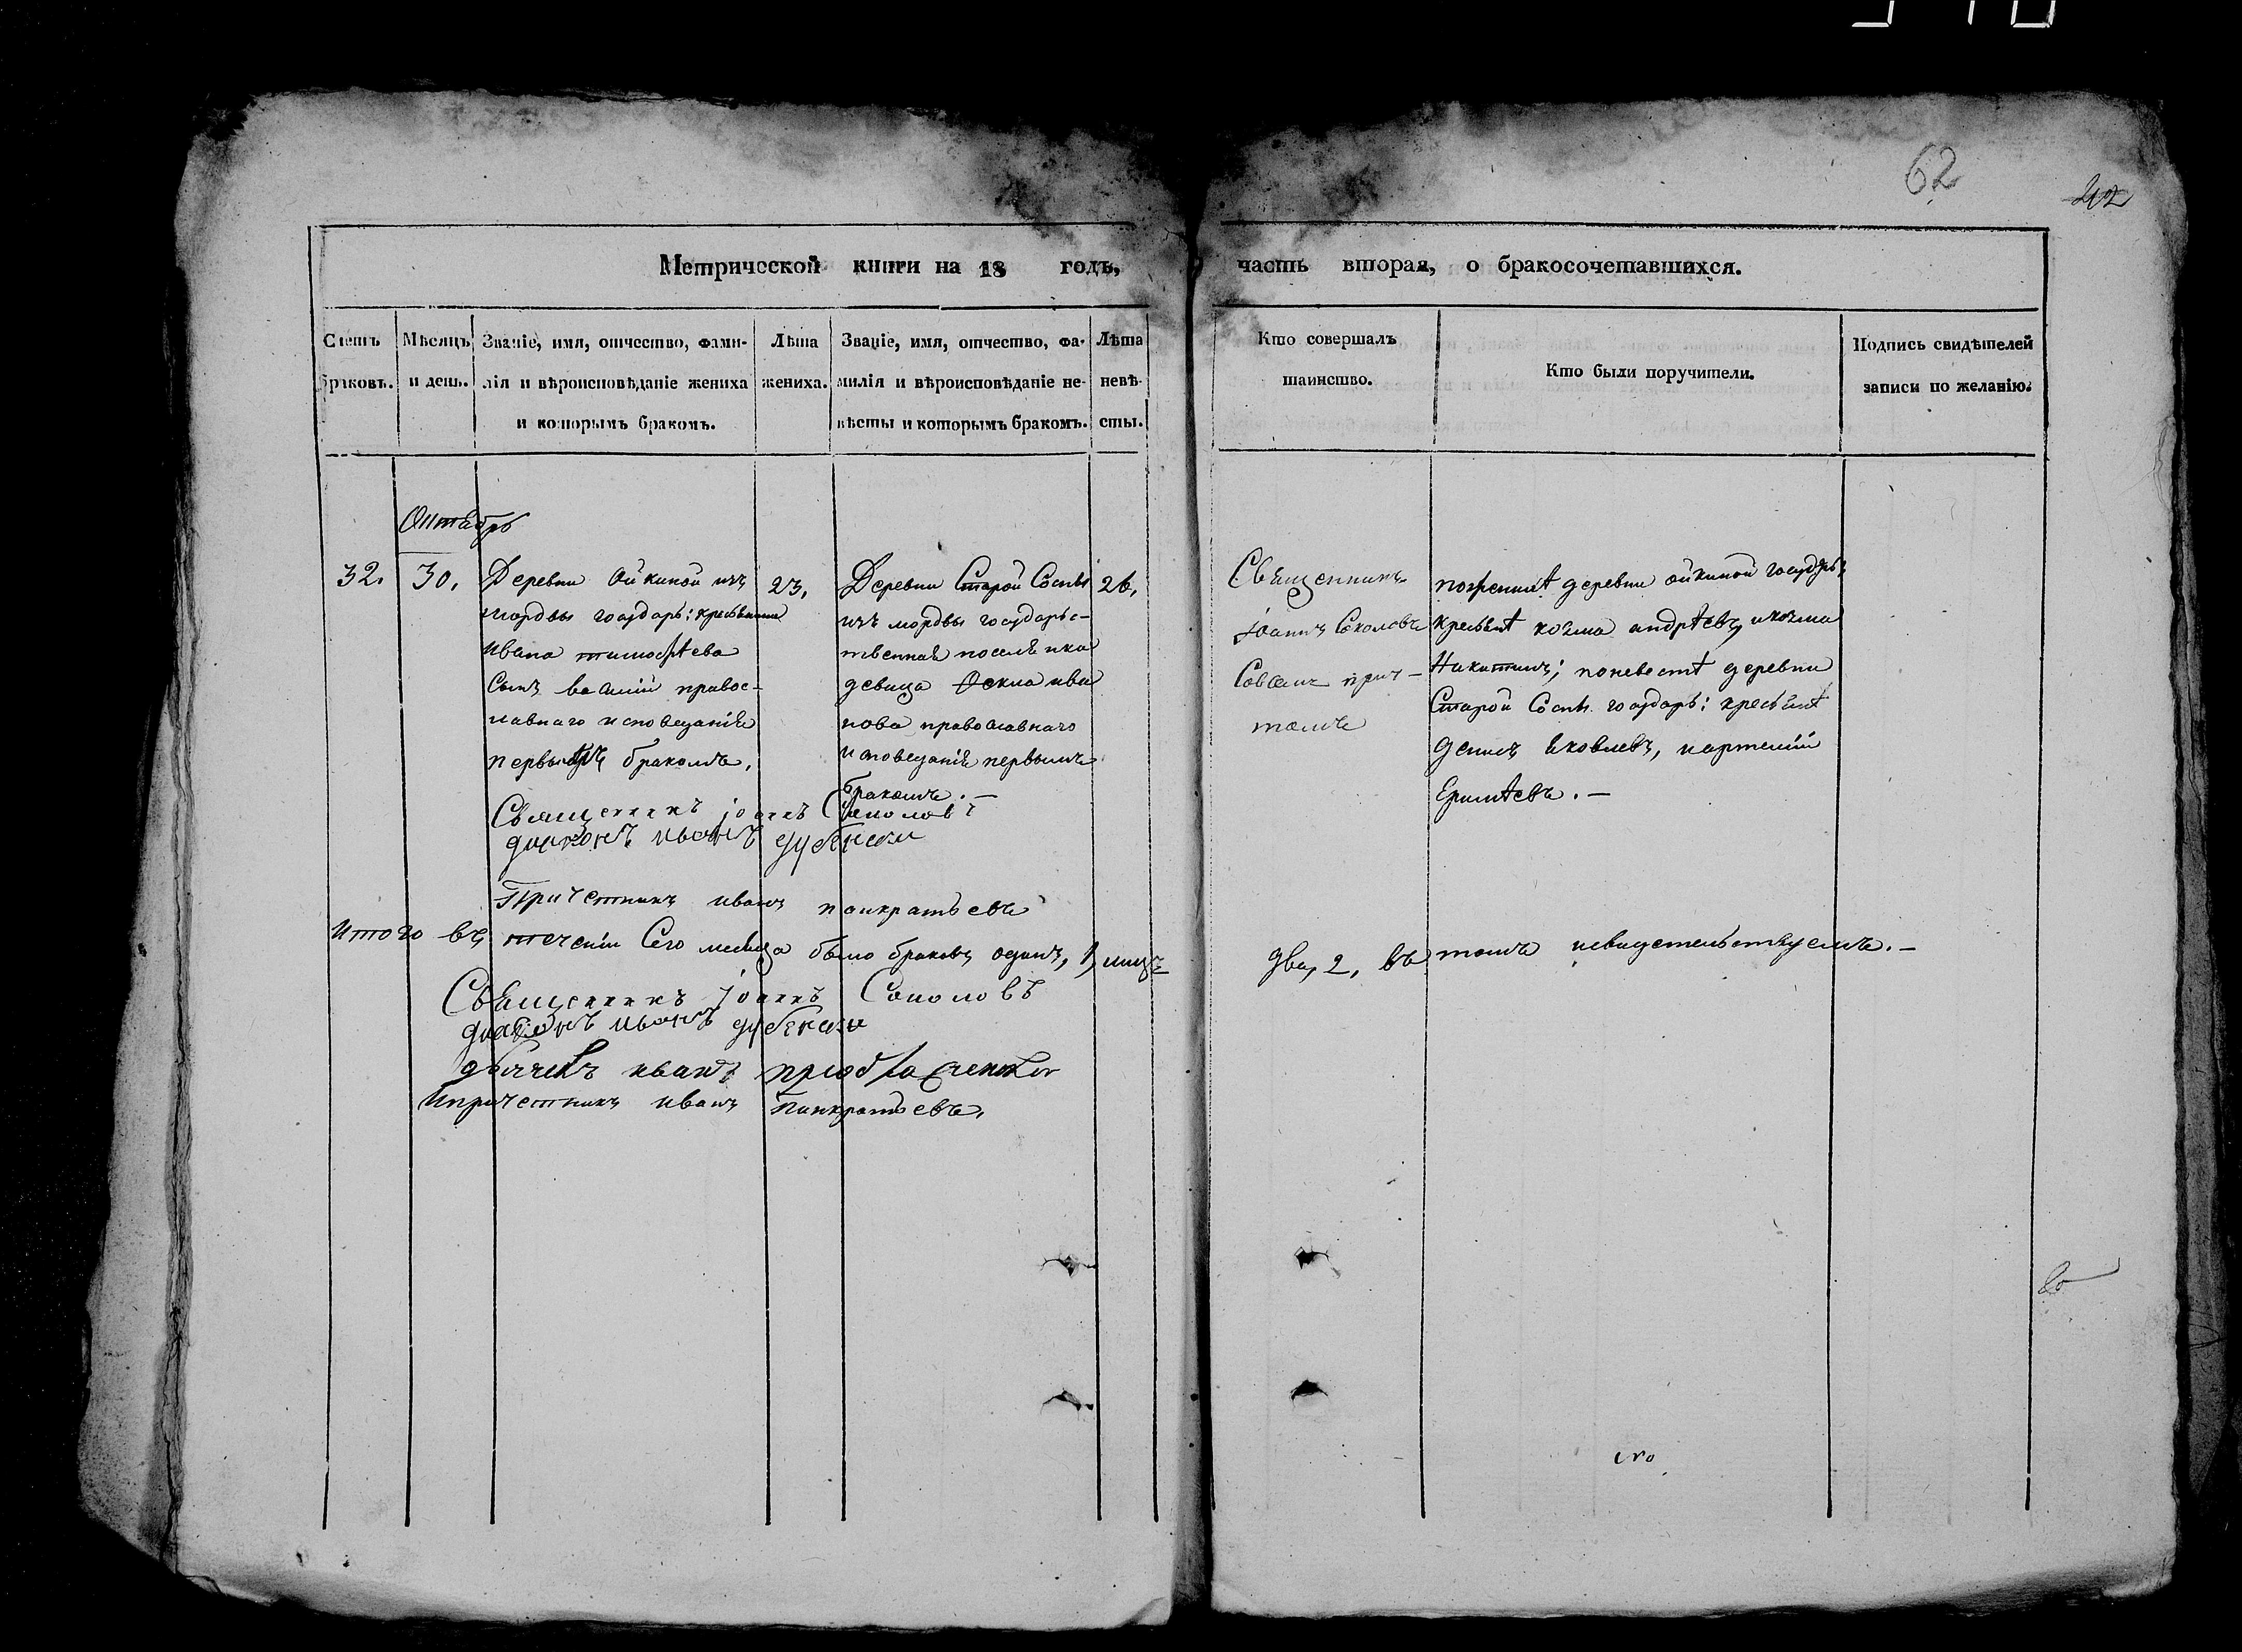 62
Метрической книги на 18 годъ, часть вторая, о бракосочетавшихся.
Счетъ браковъ.
Мѣсяцъ и день.
Званіе, имя, отчество, фами-
лія и вѣроисповѣданіе жениха
и которымъ бракомъ.
Лѣта
жениха.
Званіе, имя, отчество, фа-
милія и вѣроисповѣданіе не-
вѣсты и которымъ бракомъ.
Лѣта
невѣ-
сты.
Кто совершалъ
таинство.
Кто были поручители.
Подпись свидѣтелей
записи по желанію.
Октябрь
32.
30.
Деревни Ойкиной изъ
мордвы государь: крестьянина
Ивана тимофѣева
Сынъ василій правос-
лавнаго исповеданія
первымъ бракомъ.
23,
Деревни Старой Сосны
изъ мордвы государьс-
твенная поселянка
девица Фекла ива
нова православнаго
исповеданія первымъ
бракомъ. —
Священникъ
іоаннъ Соколовъ
Совсемъ прич-
томъ
пожених# деревни ойкиной государь:
крестьянѣ козма андрѣевъ, икозма
Никитинъ; поневестѣ деревни
Старой Сосны государь: крестьянѣ
денисъ яковлевъ, иартемій
Еримѣевъ. —
Священникъ іоаннъ Соколовъ
диаконъ иванъ дубенски
Причетникъ иванъ панкратьевъ
Итого въ течении Сего месяца было браковъ одинъ, 1, лицъ
два, 2, въ томъ исвидетельствуемъ. —
Священникъ іоаннъ Соколовъ
диаконъ иванъ дубенски
дьячекъ иванъ
Ипричетникъ иванъ Панкратьевъ,